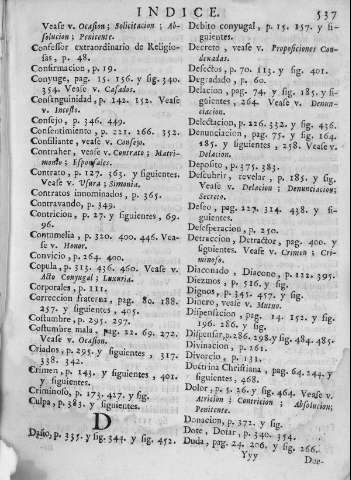 INDICE.
537
Vease v. Ocasion; Solicitacion; Ab-
solucion; Penitente.
Confessor extraordinario de Religio-
sas, p. 48.
Confirmacion, p. 19.
Conyuge, pag. 15. 156. y sig. 340.
354. Vease v. Casados.
Consanguinidad, p. 142. 152. Vease
v. Incesto.
Consejo, p. 346. 449.
Consentimiento, p. 221. 266. 352.
Consiliante, vease v. Consejo.
Contraher, vease v. Contrato; Matri-
monio; Esponsales.
Contrato, p. 127. 363. y siguientes.
Vease v. Usura; Simonia.
Contratos innominados, p. 365.
Contravando, p. 349.
Contricion, p. 27. y siguientes, 69.
96.
Contumelia, p. 320. 400. 446. Vea-
se v. Honor.
Convicio, p. 264. 400.
Copula, p. 313. 436. 460. Vease v.
Acto Conyugal; Luxuria.
Corporales, p. 111.
Correccion fraterna, pag. 80. 188.
257. y siguientes, 405.
Costumbre, p. 295. 297.
Costumbre mala, pag. 22. 69. 272.
Vease v. Ocasion.
Criados, p. 295. y siguientes, 317.
338. 342.
Crimen, p. 143. y siguientes, 401.
y siguientes.
Criminoso, p. 173. 427. y sig.
Culpa, p. 383. y siguientes.
D
Daño, p. 335. y sig. 344. y sig. 452.
Debito conyugal, p. 15. 157. y si-
guientes.
Decreto, vease v. Proposiciones Con-
denadas.
Defectos, p. 70. 113. y sig. 401.
Degradado, p. 60.
Delacion, pag. 74. y sig. 185. y si-
guientes, 264. Vease v. Denun-
ciacion.
Delectacion, p. 226. 332. y sig. 436.
Denunciacion, pag. 75. y sig. 164.
185. y siguientes, 258. Vease v.
Delacion.
Deposito, p. 375. 383.
Descubrir, revelar, p. 185. y sig.
Vease v. Delacion; Denunciacion;
Secreto.
Deseo, pag. 227. 314. 438. y si-
guientes.
Desesperacion, p. 250.
Detraccion, Detractor, pag. 400. y
siguientes. Vease v. Crimen; Cri-
minoso.
Diaconado, Diacono, p. 112. 395.
Diezmos, p. 516. y sig.
Dignos, p. 345. 457. y sig.
Dinero, vease v. Mutuo.
Dispensacion, pag. 14. 152. y sig.
196. 286. y sig.
Dispensar, p. 286. 298. y sig. 484. 485.
Divinacion, p. 261.
Divorcio, p. 131.
Doctrina Christiana, pag. 64. 244. y
siguientes, 468.
Dolor, p. 5. 26. y sig. 464. Vease v.
Atricion; Contricion; Absolucion;
Penitente.
Donacion, p. 372. y sig.
Dote, Dotar, p. 340. 354.
Duda, pag. 24. 206. y sig. 266.
Yyy
Due-